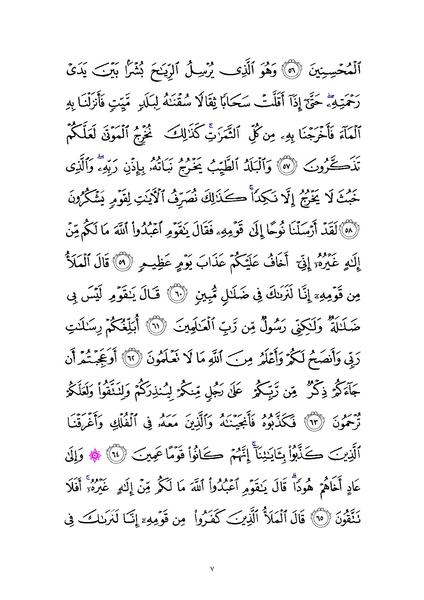 ٱلْمُحْسِنِينَ ٥٦ وَهُوَ ٱلَّذِى يُرْسِلُ ٱلرِّيَٰحَ بُشْرًۢا بَيْنَ يَدَىْ
رَحْمَتِهِۦ ۖ حَتَّىٰٓ إِذَآ أَقَلَّتْ سَحَابًا ثِقَالًا سُقْنَٰهُ لِبَلَدٍ مَّيِّتٍ فَأَنزَلْنَا بِهِ
ٱلْمَآءَ فَأَخْرَجْنَا بِهِۦ مِن كُلِّ ٱلثَّمَرَٰتِ ۚ كَذَٰلِكَ نُخْرِجُ ٱلْمَوْتَىٰ لَعَلَّكُمْ
تَذَكَّرُونَ ٥٧ وَٱلْبَلَدُ ٱلطَّيِّبُ يَخْرُجُ نَبَاتُهُۥ بِإِذْنِ رَبِّهِۦ ۖ وَٱلَّذِى
خَبُثَ لَا يَخْرُجُ إِلَّا نَكِدًا ۚ كَذَٰلِكَ نُصَرِّفُ ٱلْءَايَٰتِ لِقَوْمٍ يَشْكُرُونَ
٥٨ لَقَدْ أَرْسَلْنَا نُوحًا إِلَىٰ قَوْمِهِۦ فَقَالَ يَٰقَوْمِ ٱعْبُدُوا۟ ٱللَّهَ مَا لَكُم مِّنْ
إِلَٰهٍ غَيْرُهُۥٓ إِنِّىٓ أَخَافُ عَلَيْكُمْ عَذَابَ يَوْمٍ عَظِيمٍ ٥٩ قَالَ ٱلْمَلَأُ
مِن قَوْمِهِۦٓ إِنَّا لَنَرَىٰكَ فِى ضَلَٰلٍ مُّبِينٍ ٦٠ قَالَ يَٰقَوْمِ لَيْسَ بِى
ضَلَٰلَةٌ وَلَٰكِنِّى رَسُولٌ مِّن رَّبِّ ٱلْعَٰلَمِينَ ٦١ أُبَلِّغُكُمْ رِسَٰلَٰتِ
رَبِّى وَأَنصَحُ لَكُمْ وَأَعْلَمُ مِنَ ٱللَّهِ مَا لَا تَعْلَمُونَ ٦٢ أَوَعَجِبْتُمْ أَن
جَآءَكُمْ ذِكْرٌ مِّن رَّبِّكُمْ عَلَىٰ رَجُلٍ مِّنكُمْ لِيُنذِرَكُمْ وَلِتَتَّقُوا۟ وَلَعَلَّكُمْ
تُرْحَمُونَ ٦٣ فَكَذَّبُوهُ فَأَنجَيْنَٰهُ وَٱلَّذِينَ مَعَهُۥ فِى ٱلْفُلْكِ وَأَغْرَقْنَا
ٱلَّذِينَ كَذَّبُوا۟ بِـَٔايَٰتِنَآ ۚ إِنَّهُمْ كَانُوا۟ قَوْمًا عَمِينَ ٦٤ ۞ وَإِلَىٰ
عَادٍ أَخَاهُمْ هُودًا ۗ قَالَ يَٰقَوْمِ ٱعْبُدُوا۟ ٱللَّهَ مَا لَكُم مِّنْ إِلَٰهٍ غَيْرُهُۥٓ ۚ أَفَلَا
تَتَّقُونَ ٦٥ قَالَ ٱلْمَلَأُ ٱلَّذِينَ كَفَرُوا۟ مِن قَوْمِهِۦٓ إِنَّا لَنَرَىٰكَ فِى
٧